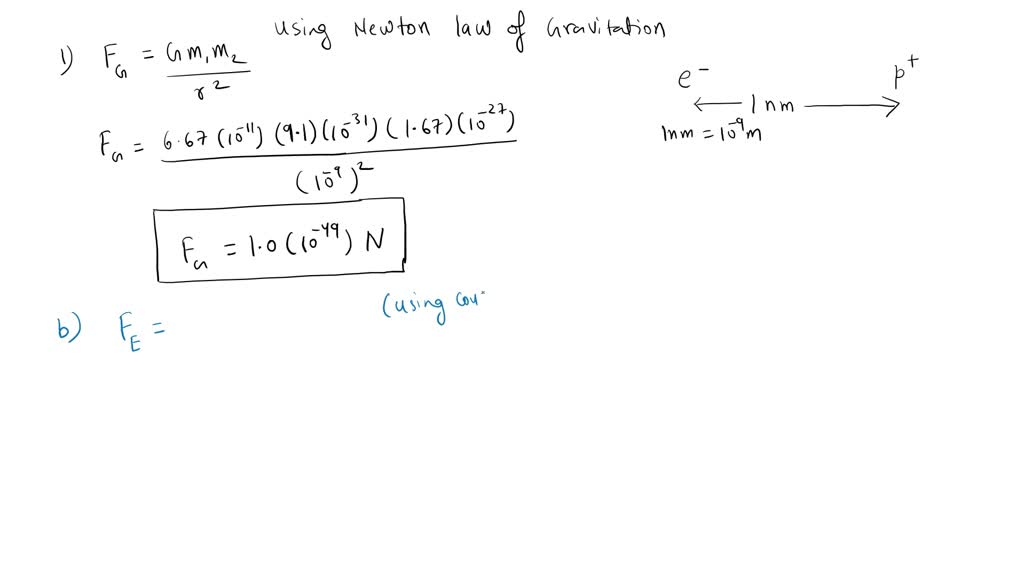 using Newton law of Gravitation
1) F_G = G m₁ m₂ / r²
e⁻ p⁺
1 nm
1nm = 10⁻⁹m
F_G = 6.67 (10⁻¹¹) (9.1) (10⁻³¹) (1.67) (10⁻²⁷) / (10⁻⁹)²
F_G = 1.0 (10⁻⁴⁹) N
(using cou
b) F_E =